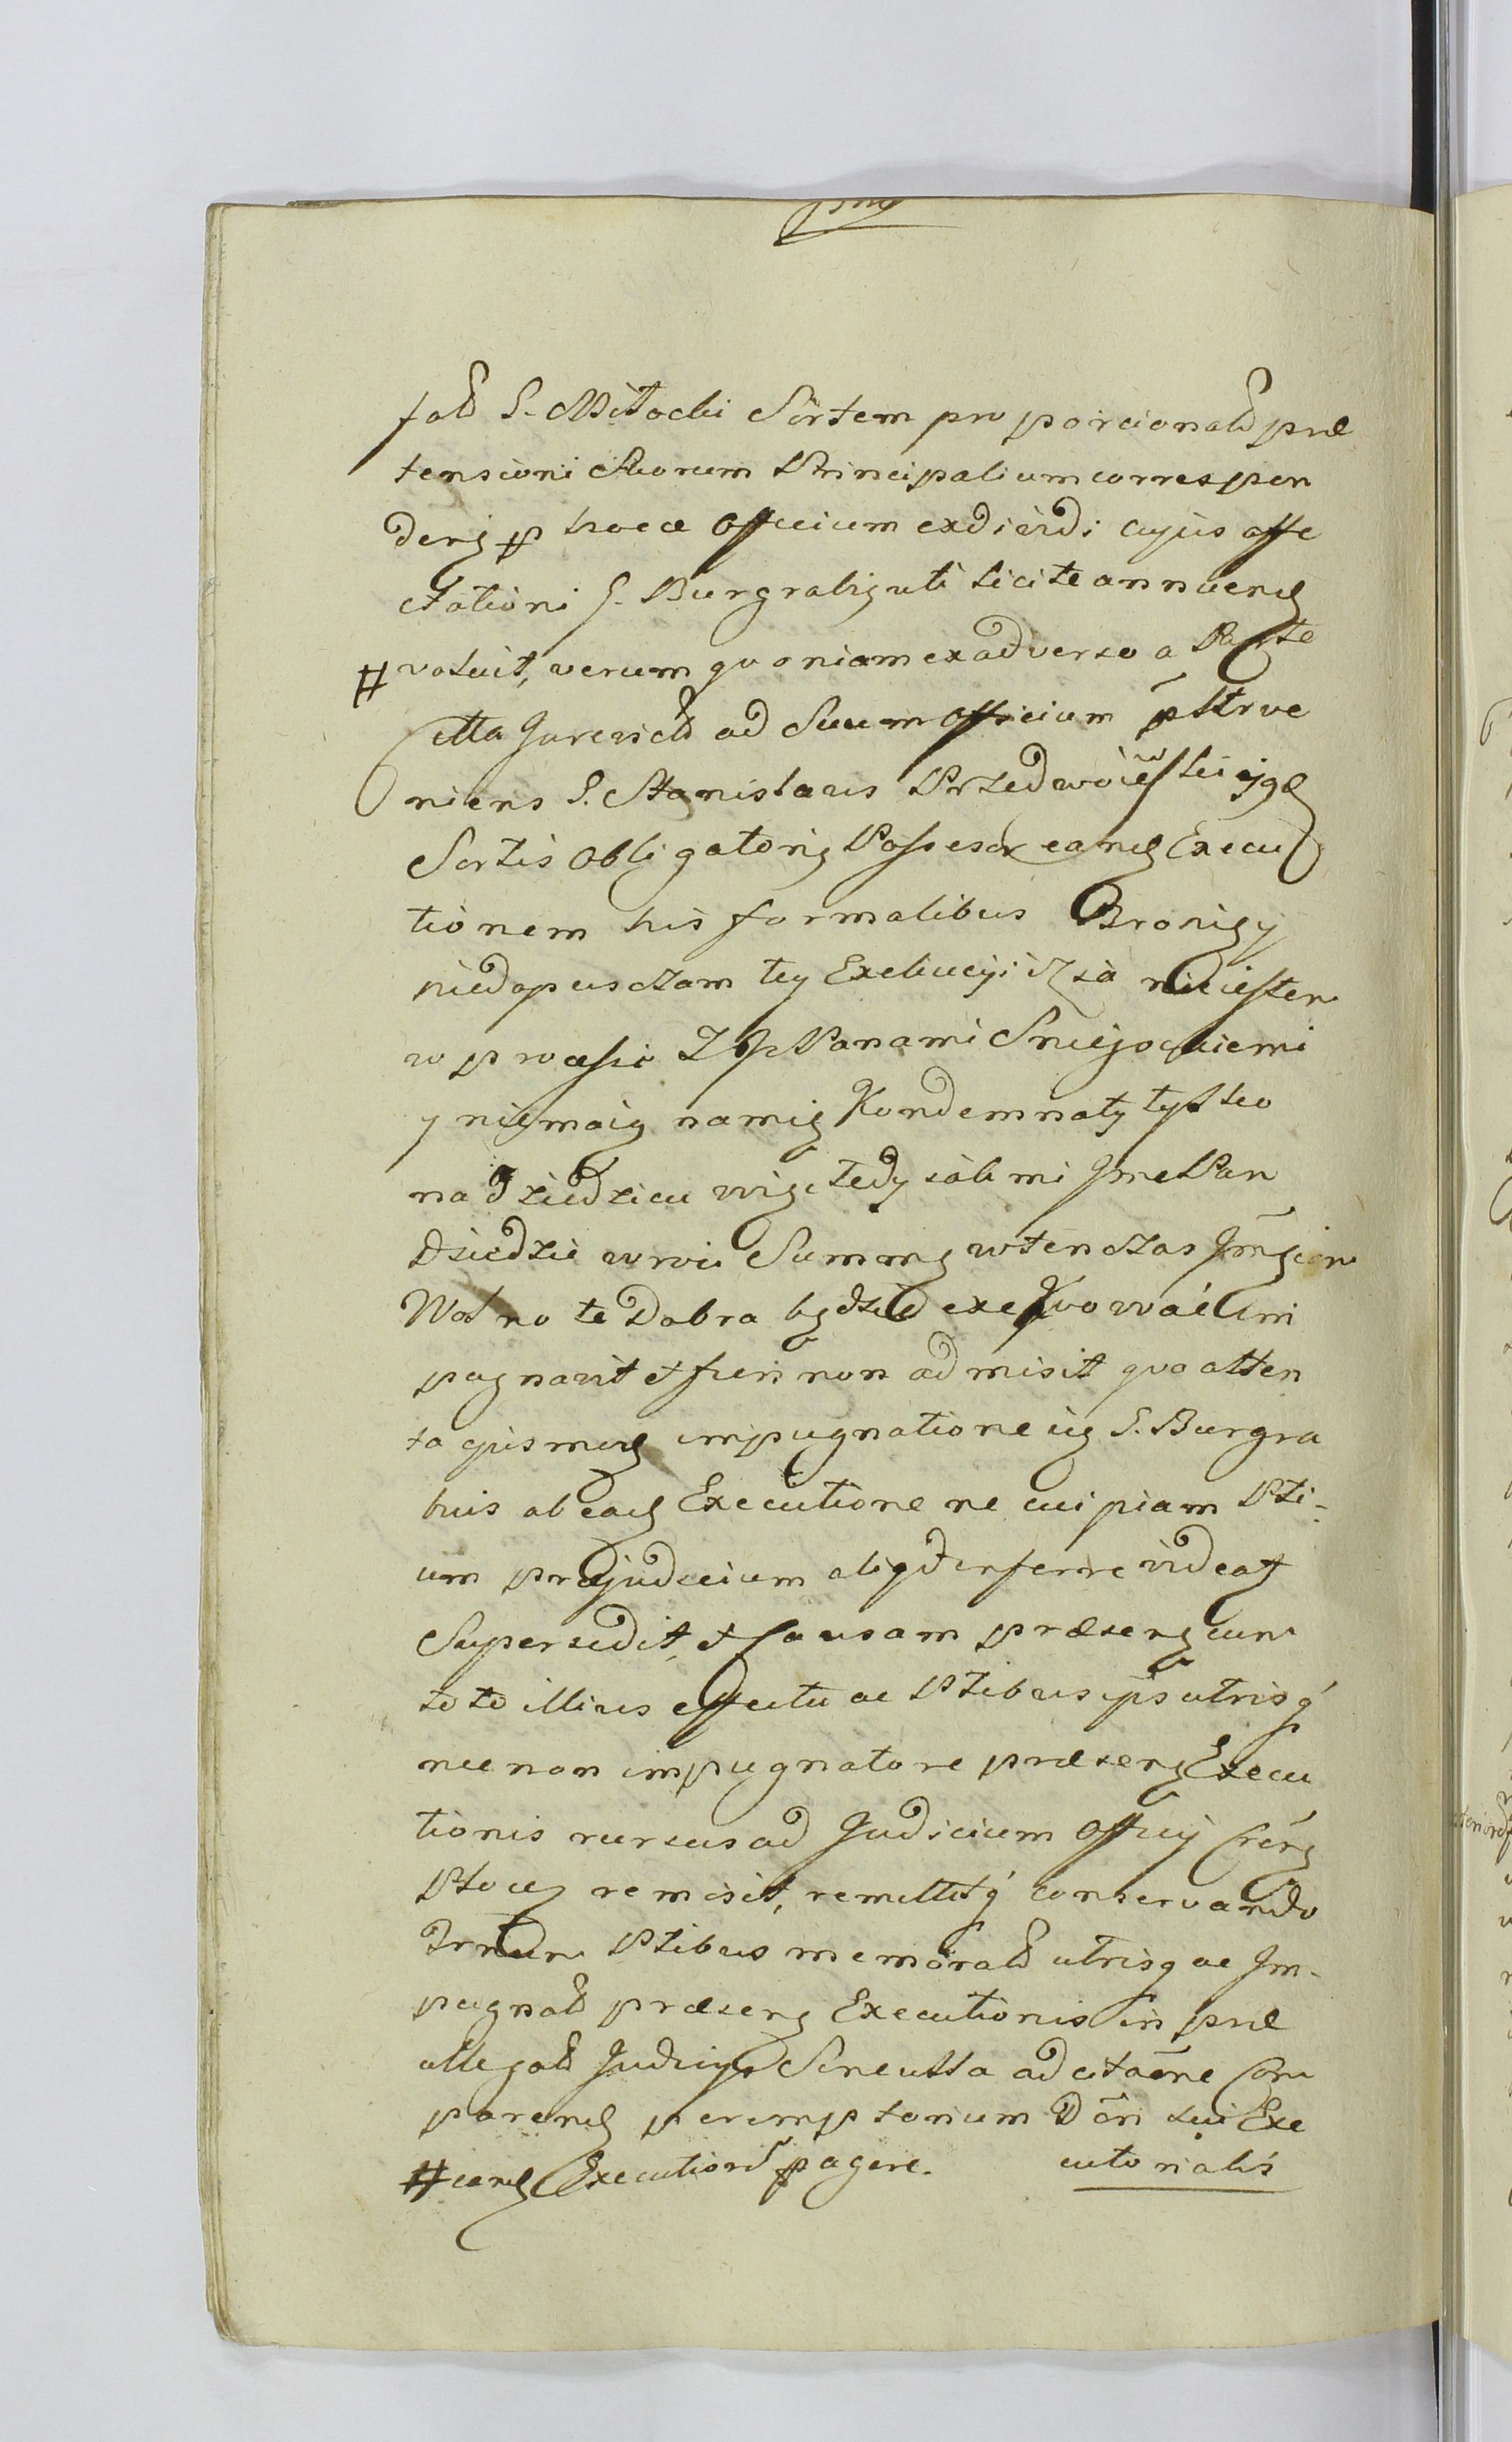 fatd G. Mitocki Sortem pro porcionatd præ
tensioni Suorum Principalium correspon
deng p hocce Officium exdividi cujus affe
ctationi G. Burgrabig uti licite annuend
# voluit, verum quoniam ex adverso a Parte
Citta Jurevictd ad Suum Officium pstrve
niens G. Stanislaus Przedwoiewski ejgd
Sortis Obligatorig Possesor eand Execu
tionem his formalibus Bronię y
niedopusczam tey Exekucyi iz ia nieiestem
w prcessie Z Ich Panami Sniejockiemi
y niemaią namię Kondemnaty tylko
na Dziedzicu więc tedy iak mi Jmc Pan
Dziedzic wroci Summę wtenczas Jmciom
Wolno te Dobra będzie exekwować im
pugnavit et fieri non admisit quo atten
ta ejusmodi impugnatione id G. Burgra
bius ab ead Executione ne cuipiam Pti-
um præjudicium aliqd inferre videat
Supersedit, et Causam præseng cum
toto illius effectu ac Ptibus ips utrisq
necnon impugnatore præseng Execu
tionis rursus ad Judicium Officij Cren
Plocen remisit, remittitq conservando
Trmnm Ptibus memoratd utrisq ac Im-
pugnatd præseng Executionis in præ
allegatd Judicijs Sine ulla adcitaone Com
parend peremptorium Don sui Exe
# eand Executiord pagere. cutorialis